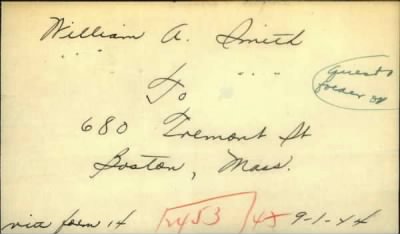 William A. Smith
" " "
To
680 Tremont St
Boston, Mass.
Guests
folder
via form 14
2453 48 9-1-44